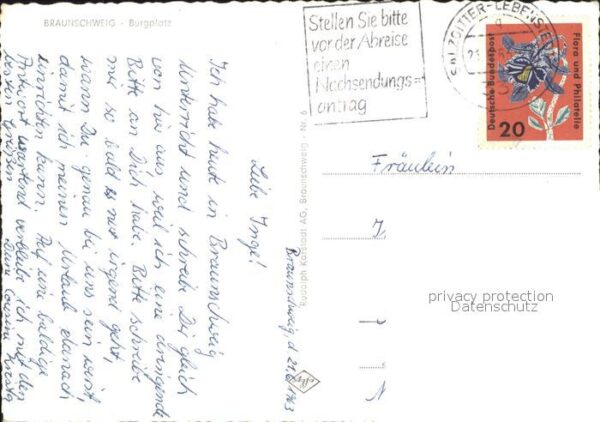 BRAUNSCHWEIG - Burgplatz
Braunschweig d. 21.6.1963
Liebe Inge!
Ich habe heute in Braunschweig
Unterricht und schreibe Dir gleich
von hier aus weil ich eine dringende
Bitte an Dich habe. Bitte schreibe
mir so bald es nur irgend geht,
wann Du genau bei uns sein wirst,
damit ich meinen Urlaub danach
einrichten kann. Auf eine baldige
Antwort wartend verbleibe ich mit den
besten Grüßen Deine
Rudolph Karstadt AG, Braunschweig - Nr. 6
Stellen Sie bitte
vor der Abreise
einen
Nachsendungs=
antrag
SALZGITTER-LEBENSTEDT
Deutsche Bundespost
Flora und Philatelie
20
Fräulein
J
privacy protection
Datenschutz